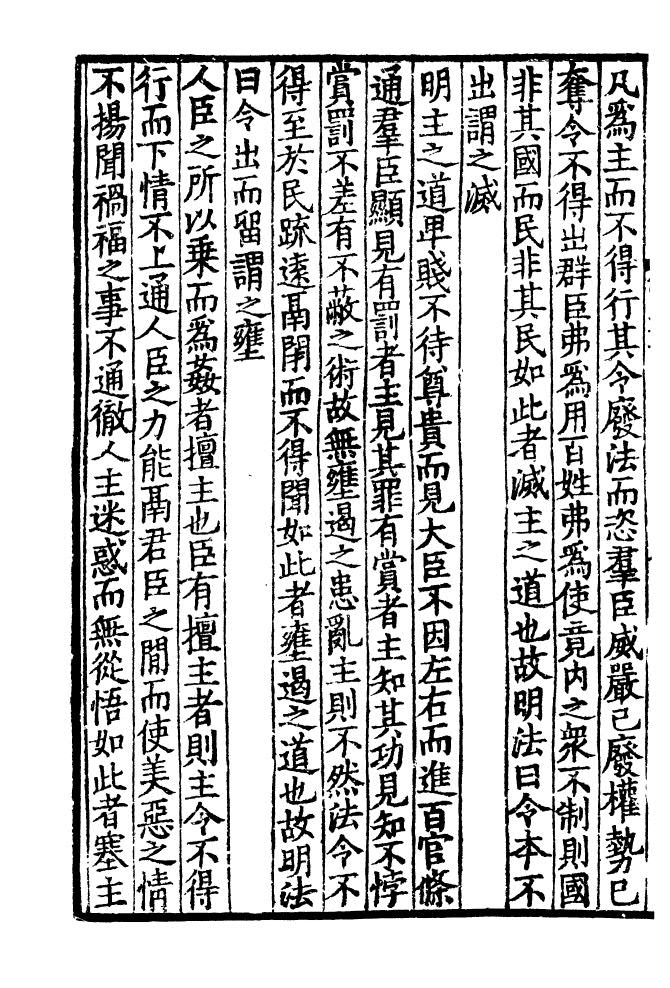 凡爲主而不得行其令廢法而恣羣臣威嚴已廢權勢已
奪令不得出群臣弗爲用百姓弗爲使竟内之衆不制則國
非其國而民非其民如此者滅主之道也故明法曰令本不
出謂之滅
明主之道卑賤不待尊貴而見大臣不因左右而進百官條
通羣臣顯見有罰者主見其罪有賞者主知其功見知不悖
賞罰不差有不蔽之術故無壅遏之患亂主則不然法令不
得至於民疏遠鬲閉而不得聞如此者壅遏之道也故明法
曰令出而留謂之壅
人臣之所以乗而爲姦者擅主也臣有擅主者則主令不得
行而下情不上通人臣之力能鬲君臣之閒而使美惡之情
不揚聞禍福之事不通徹人主迷惑而無從悟如此者塞主